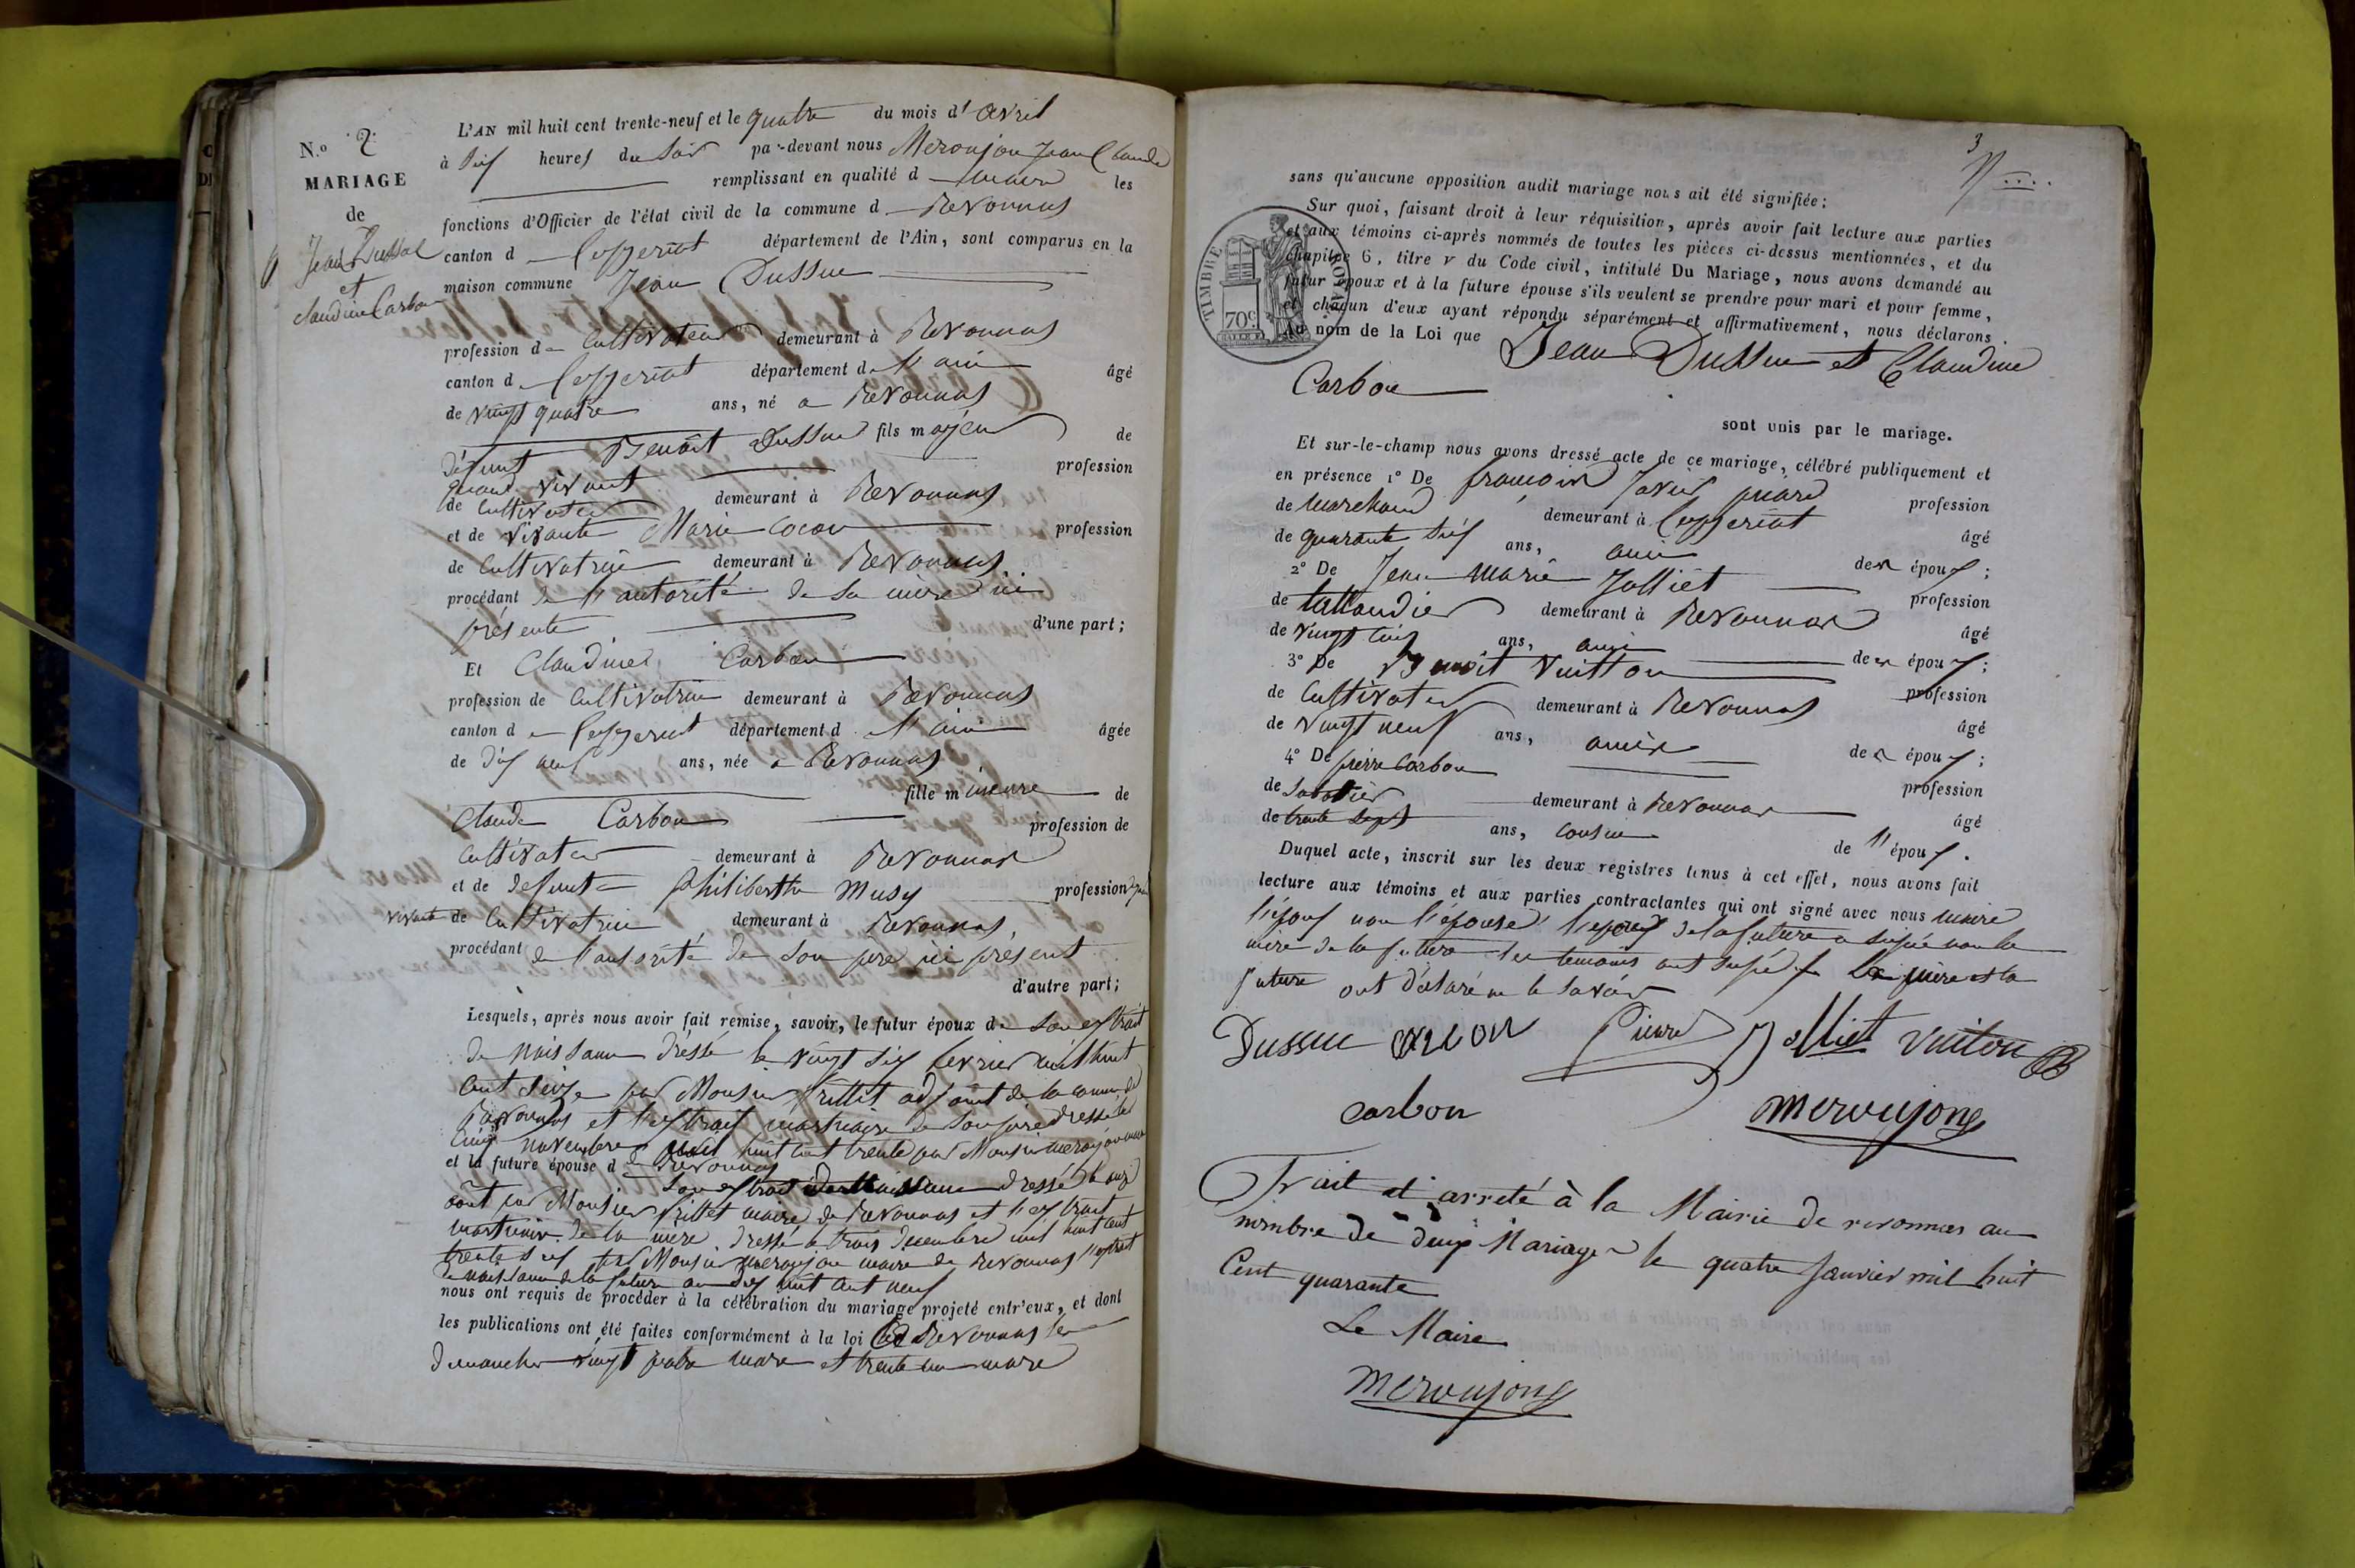 N.o 2.
MARIAGE
de
Jean Dussuc
et
Claudine Carbon
L'AN mil huit cent trente-neuf et le quatre du mois d'avril
à six heures du soir par-devant nous Meroujon Jean Claude
remplissant en qualité d maire les
fonctions d'Officier de l'état civil de la commune d Revonnas
canton d Ceyzeriat département de l'Ain, sont comparus en la
maison commune Jean Dussuc
profession de Cultivateur demeurant à Revonnas
canton d Ceyzeriat département de l'ain âgé
de vingt quatre ans, né a Revonnas
fils majeur de
défunt Benoit Dussuc profession
quand vivant
de Cultivateur demeurant à Revonnas
et de vivante Marie Cocon profession
de Cultivatrice demeurant à Revonnas
procédant de l'autorité de sa mère ici
présente d'une part ;
Et Claudine Carbon
profession de Cultivatrice demeurant à Revonnas
canton d Ceyzeriat département d l'ain âgée
de dix neuf ans, née a Revonnas
fille mineure de
Claude Carbon profession de
Cultivateur demeurant à Revonnas
et de defunte Philiberthe Musy profession quand
vivante de Cultivatrice demeurant à Revonnas
procédant de l'autorité de son père ici présent
d'autre part ;
Lesquels, après nous avoir fait remise, savoir, le futur époux de son extrait
de naissance dressé le vingt six fevrier mil huit
cent seize par Monsieur frillet adjoint de la commune de
Revonnas et l'extrait mortuaire de son père dressé le
cinq novembre mil huit cent trente par Monsieur meroujon maire
et la future épouse d de Revonnas
son extrait de naissance dressé le onze
août par Monsieur frillet maire de Revonnas et l'extrait
mortuaire de la mère dressé le trois decembre mil huit cent
trente par Monsieur meroujon maire de Revonnas l'extrait
de naissance de la future an dix huit cent neuf
nous ont requis de procéder à la célébration du mariage projeté entr'eux, et dont
les publications ont été faites conformément à la loi à Revonnas les
dimanches vingt quatre mars et trente un mars
3
sans qu'aucune opposition audit mariage nous ait été signifiée ;
Sur quoi, faisant droit à leur réquisition, après avoir fait lecture aux parties
et aux témoins ci-après nommés de toutes les pièces ci-dessus mentionnées, et du
chapitre 6, titre v du Code civil, intitulé Du Mariage, nous avons demandé au
futur époux et à la future épouse s'ils veulent se prendre pour mari et pour femme,
et chacun d'eux ayant répondu séparément et affirmativement, nous déclarons
au nom de la Loi que Jean Dussuc et Claudine
Carbon
TIMBRE ROYAL
70c
sont unis par le mariage.
Et sur-le-champ nous avons dressé acte de ce mariage, célébré publiquement et
en présence 1° De françois Xavier profession
de marchand demeurant à Ceyzeriat âgé
de quarante six ans, ami des époux ;
2° De Jean Marie Jolliet profession
de taillandier demeurant à Revonnas âgé
de vingt cinq ans, ami des époux ;
3° De Benoit Vuitton profession
de Cultivateur demeurant à Revonnas âgé
de vingt neuf ans, ami des époux ;
4° De pierre Carbon profession
de sabotier demeurant à Revonnas âgé
de trente sept ans, cousin de l'époux.
Duquel acte, inscrit sur les deux registres tenus à cet effet, nous avons fait
lecture aux témoins et aux parties contractantes qui ont signé avec nous maire
l'époux non l'épouse de la future a signé non la
mère de la future les temoins ont signé la mère et la
future ont déclaré ne le savoir
Dussuc carbon Jolliet Vuiton B
carbon Meroujon
Fait et arreté à la Mairie de revonnas au
nombre de deux Mariages le quatre Janvier mil huit
Cent quarante
Le Maire
Meroujon